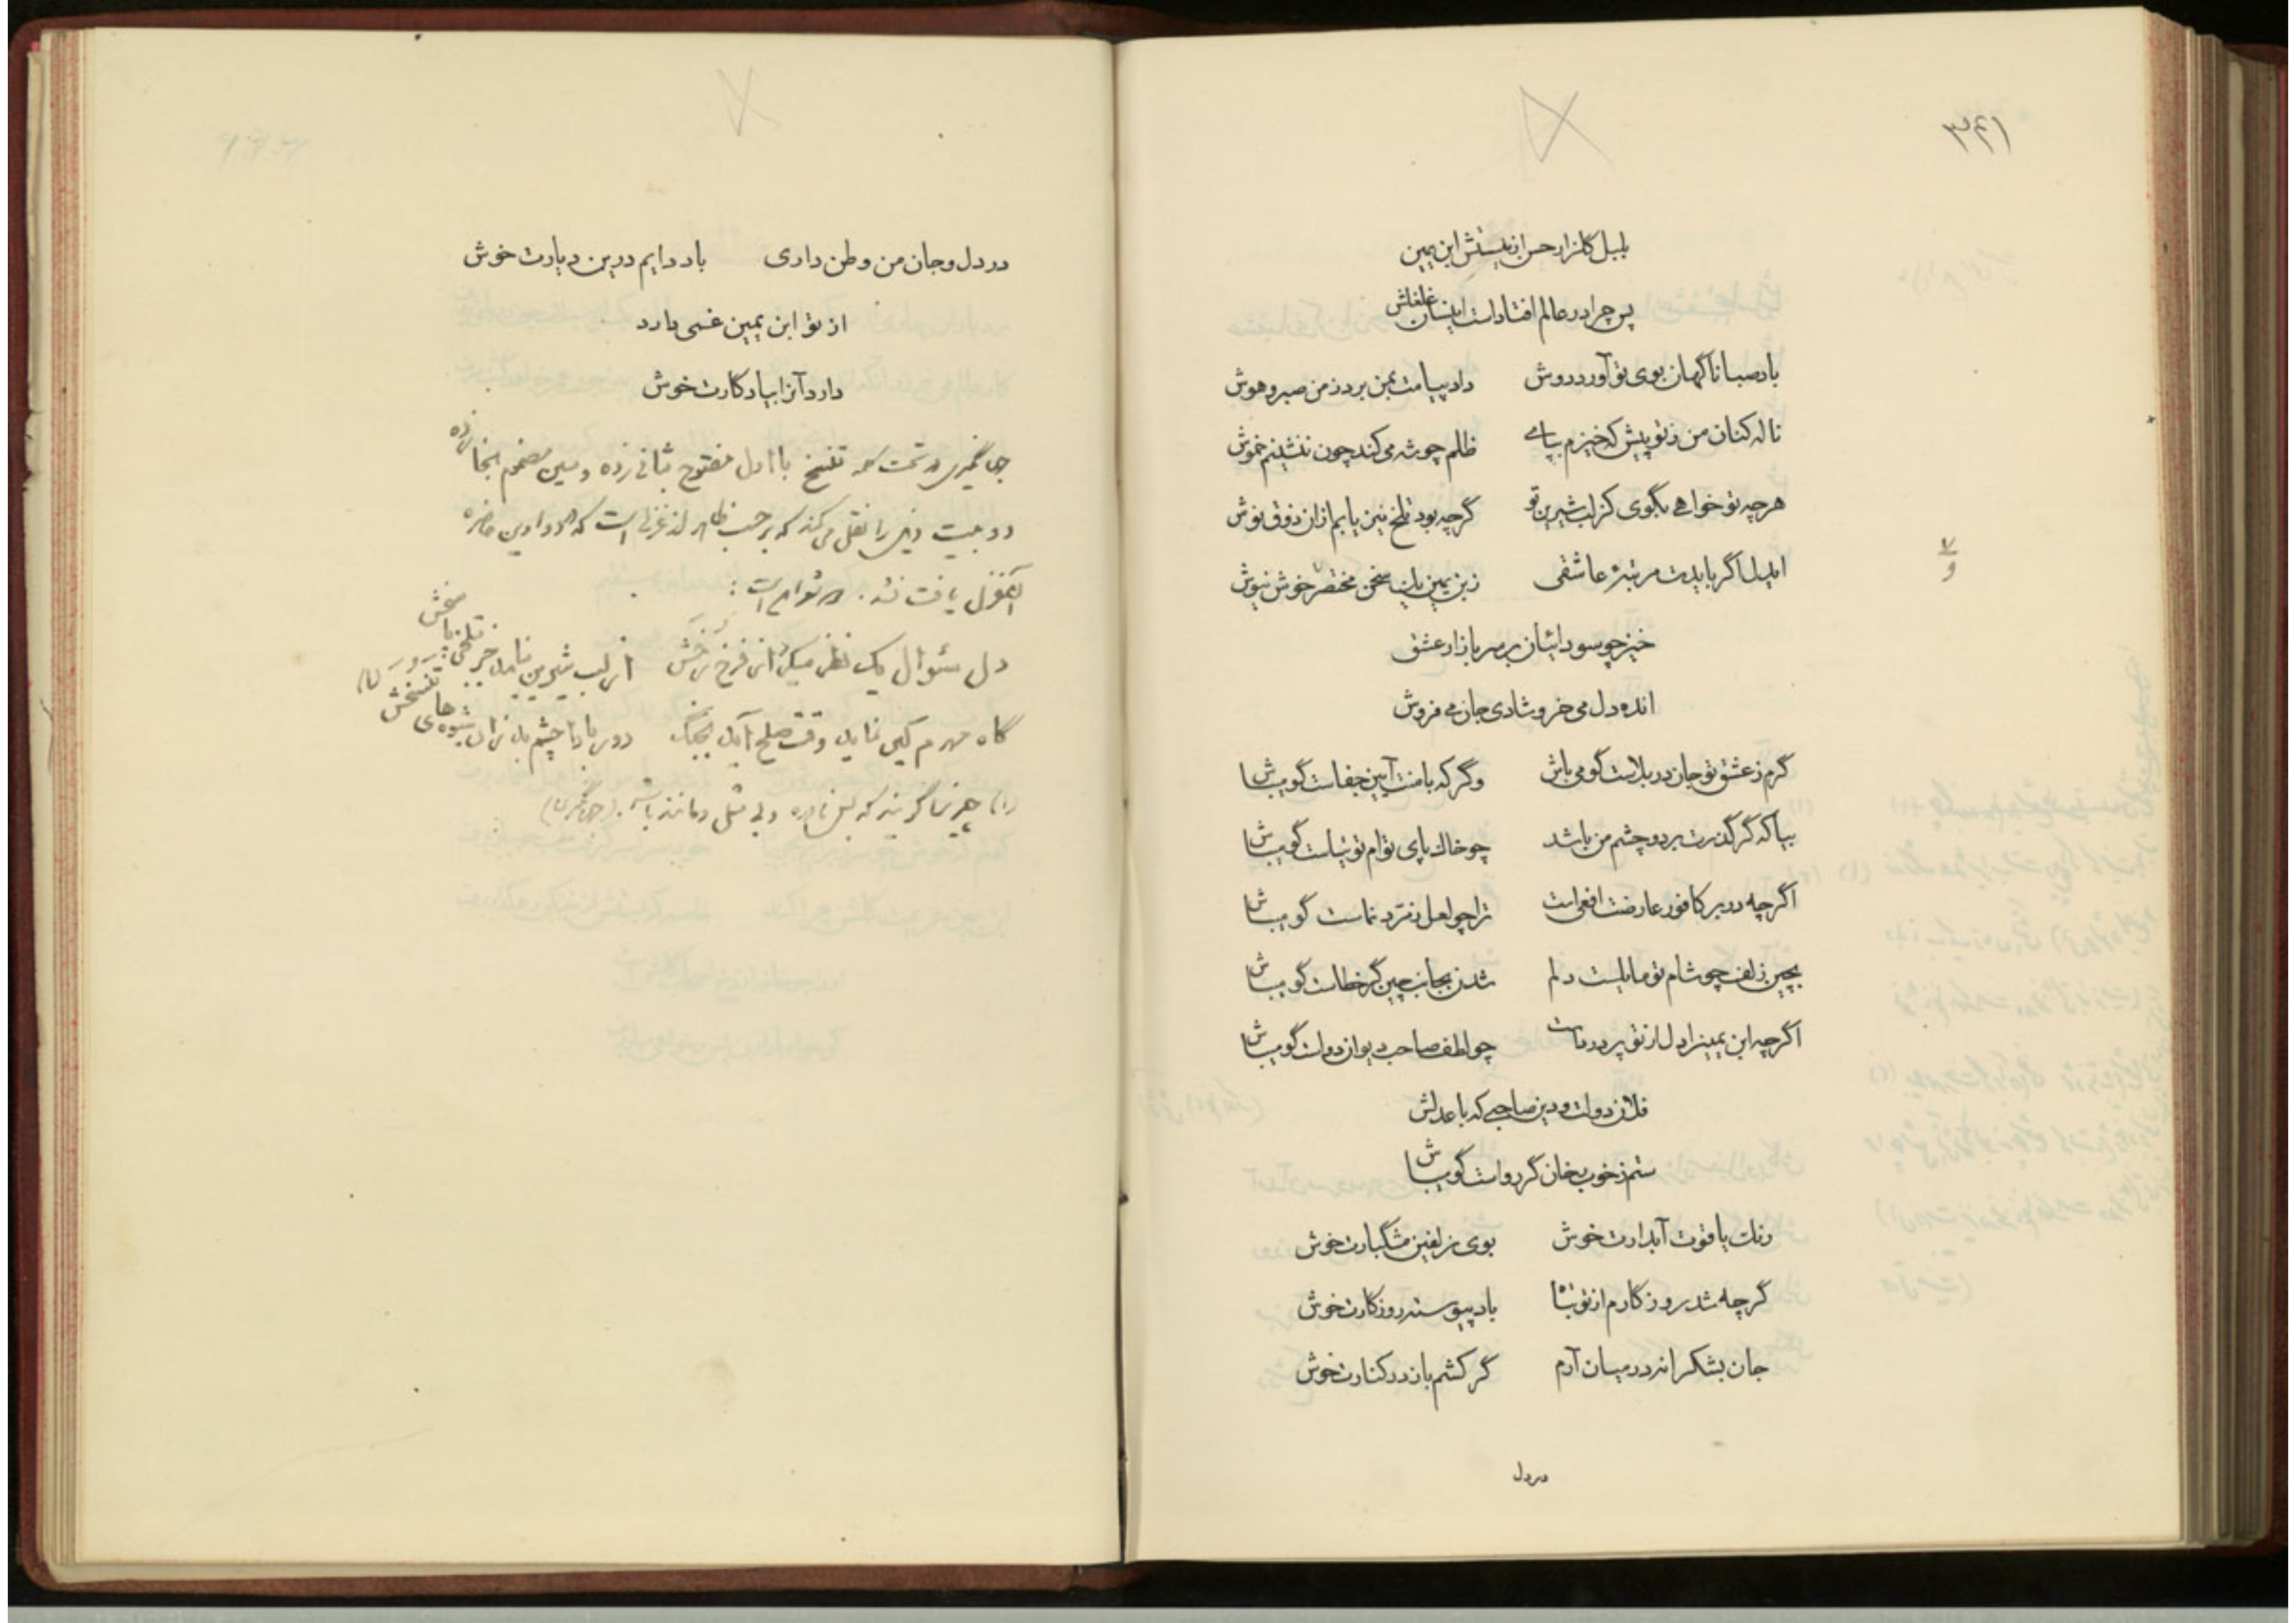 ۳۴۱
بلبل گلزار حسن ار نیستش ابن یمین
پس چرا در عالم افتادست ازینسان غلغلش
باد صبا ناگهان بوی تو آورد دوش
داد پیامت بمن برد ز من صبر و هوش
ناله کنان من ز تو پیش که خیزم بپای
ظلم چو شه می کند چون ننشینم خموش
هرچه تو خواهی بگوی کز لب شیرین تو
گرچه بود تلخ نیز یابم ازان ذوق نوش
ایدل اگر بایدت مرتبهٔ عاشقی
ز ابن یمین این سخن مختصر خوش نیوش
خیز چو سودائیان بر سر بازار عشق
انده دل می خر و شادی جان می فروش
گرم ز عشق تو جان در بلاست گو می باش
وگر که با منت آیین جفاست گو میباش
بیا که گر گذرت بر دو چشم من باشد
چو خاک پای توام توتیاست گو میباش
اگرچه در بر کافور عارضت افعی است
ترا چو لعل زمرد نماست گو میباش
بچین زلف چو شام تو مایلست دلم
شدن بجانب چین گر خطاست گو میباش
اگرچه ابن یمین را دل از تو پر دردست
چو لطف صاحب دیوان دواست گو میباش
دولت و دین صاحبی که با عدلش
ستم ز خوب رخان گر رواست گو میباش
رنگ یاقوت آبدارت خوش
بوی زلفین مشکبارت خوش
گرچه شد روزگارم از تو تباه
باد پیوسته روزگارت خوش
جان بشکرانه در میان آرم
گر کشم باز در کنارت خوش
در دل
در دل و جان من وطن داری
باد دایم درین دیارت خوش
از تو ابن یمین غمی دارد
دارد آنرا بیادگارت خوش
جهانگیری در تحت کلمه تنسخ با اول مفتوح بثانی زده و سین مضموم بخا زده
دو بیت ذیل را نقل می کند که بر حسب ظاهر از غزلی است که در دواوین حاضره
آن غزل یافت نشد
دل سئوال یک نظر میکرد از فرخ رخش
از لب شیرین نیامد جز بتلخی پاسخش
گاه مهرم کین نماید وقت صلح آید بجنگ
دور بادا چشم بد زان شیوه های تنسخش
(۱) چیزی را گویند که بس نادر و بی مثل و مانند باشد. (جهانگیری)